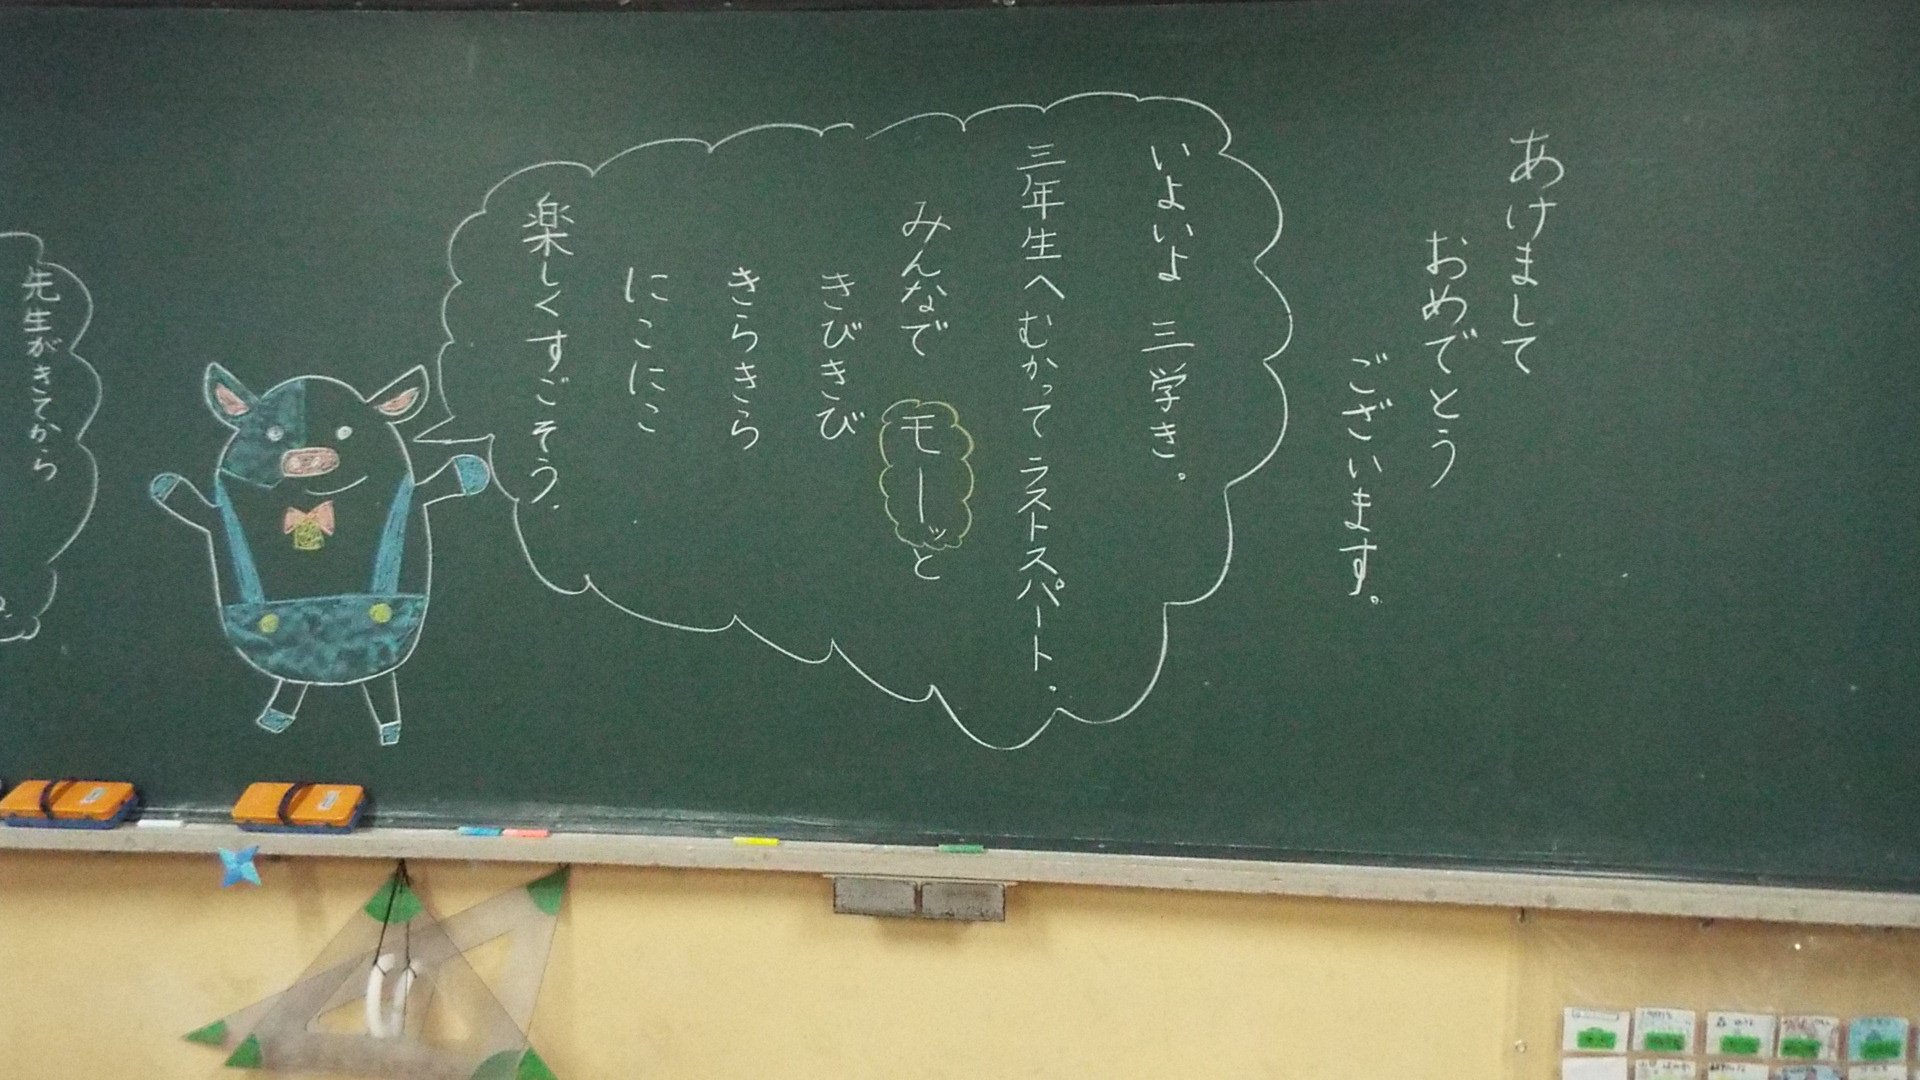 あけまして
おめでとう
ございます。
いよいよ 三学き。
三年生へむかって ラストスパート.
みんなで モーッと
きびきび
きらきら
にこにこ
楽しくすごそう.
先生がきてから